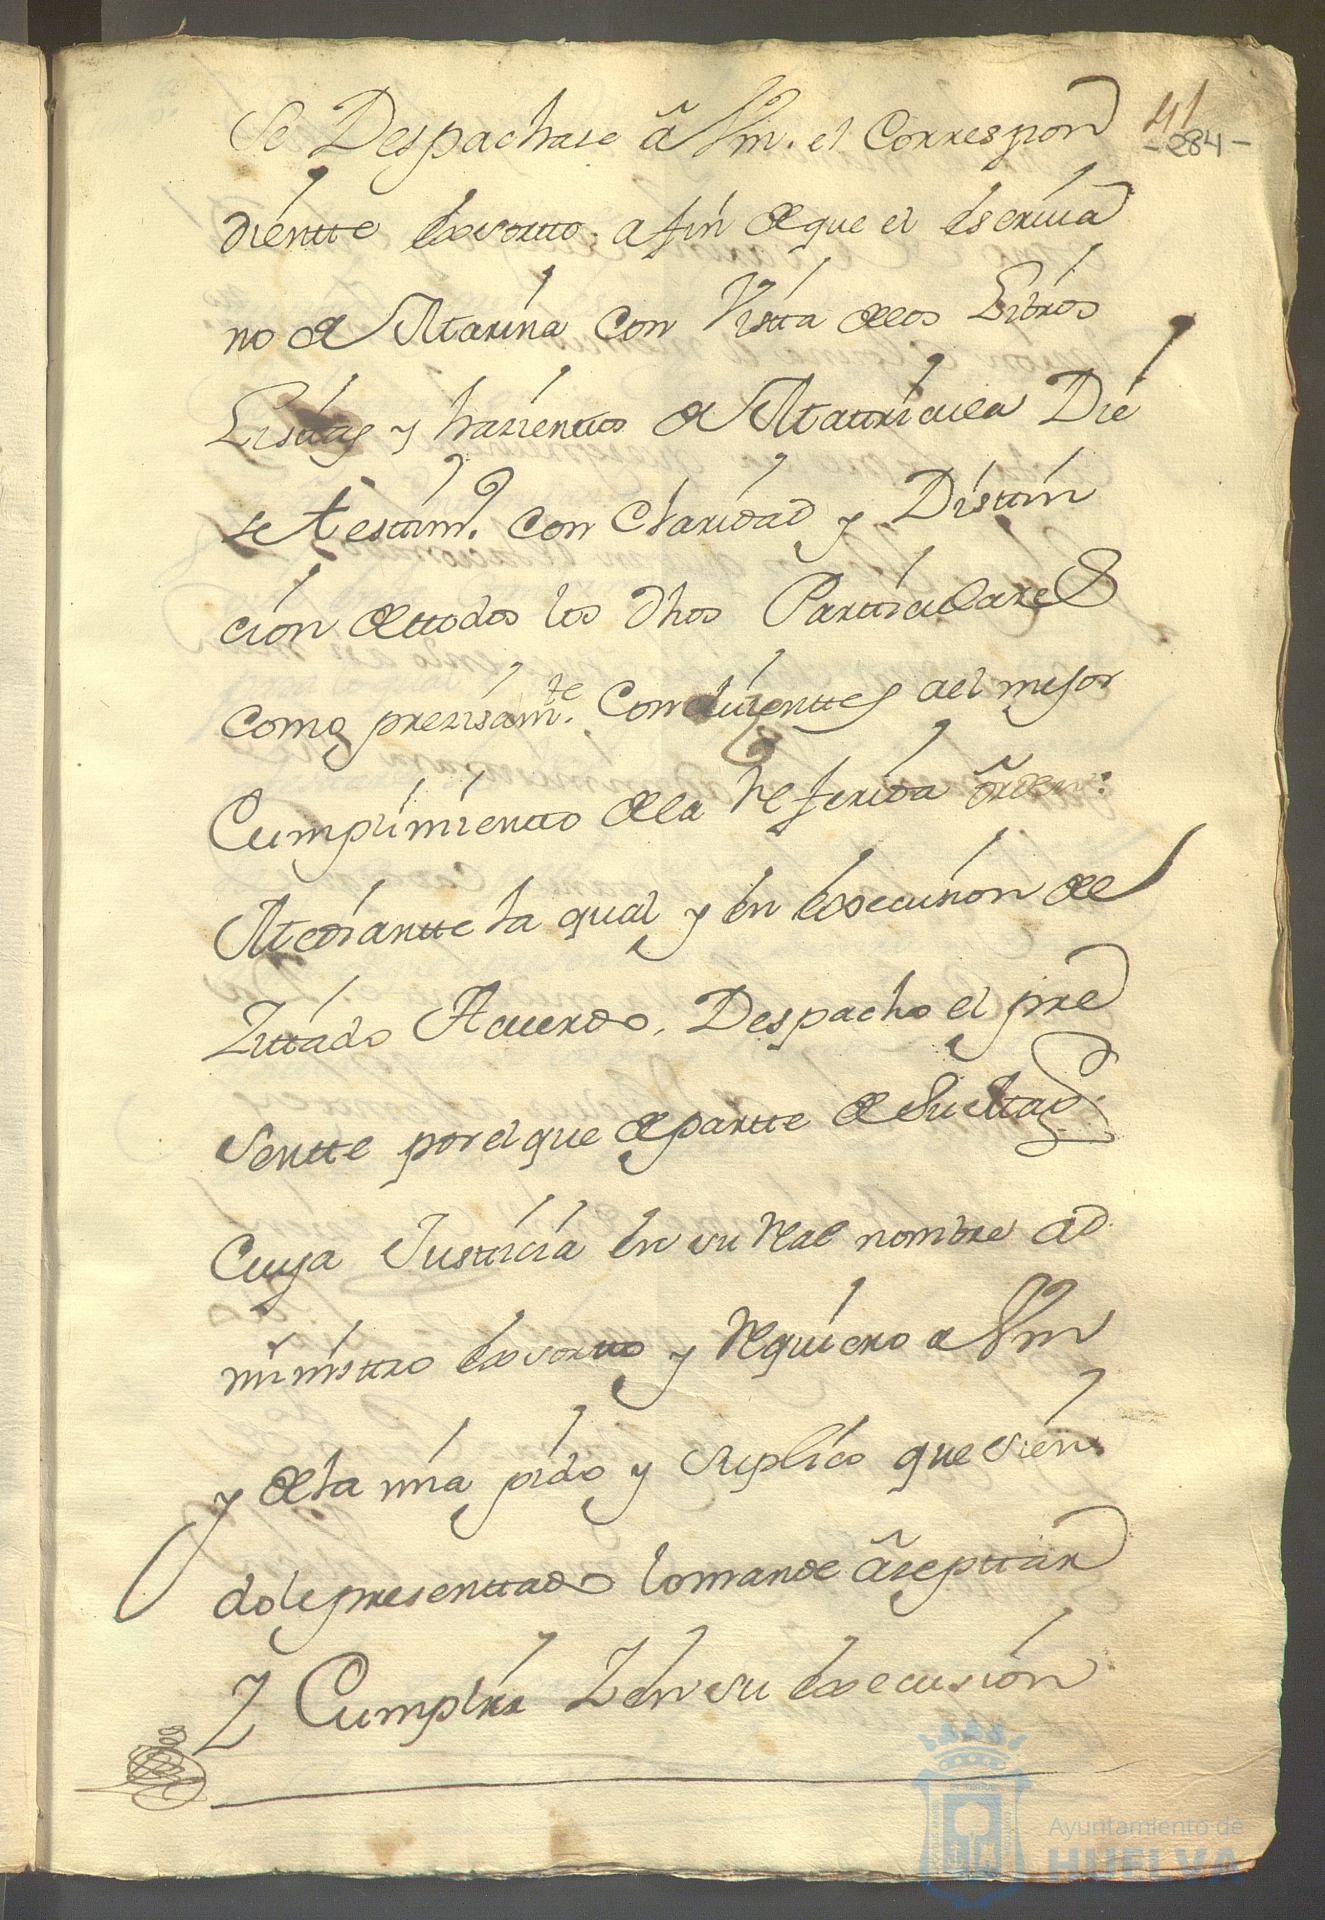 Se Despachase â Vm. el Correspon
41
-284-
diente Exsorto. a fin de que el Escriva
no de Marina con Vista de los Libros
Listas y hazientos de Matricula Die
se testim.º con Claridad y Distin
ción de ttodos los dhos Particulares
como prezisam.te Conduzenttes ael mejor
Cumplimientto de la Referida õrden:
Mediantte la qual y en Exsecusion del
Zittado Acuerdo. Despacho el pre
Sentte por el que de partte de Su Mag.
Cuya Justicia en su Real nombre ad
ministro Exsortto y Requiero a Vm
y de la mia pido y suplico que sien
dole presenttado lo mande âzepttar
Z Cumplir Z en su Exsecusion
Ayuntamiento de
HUELVA